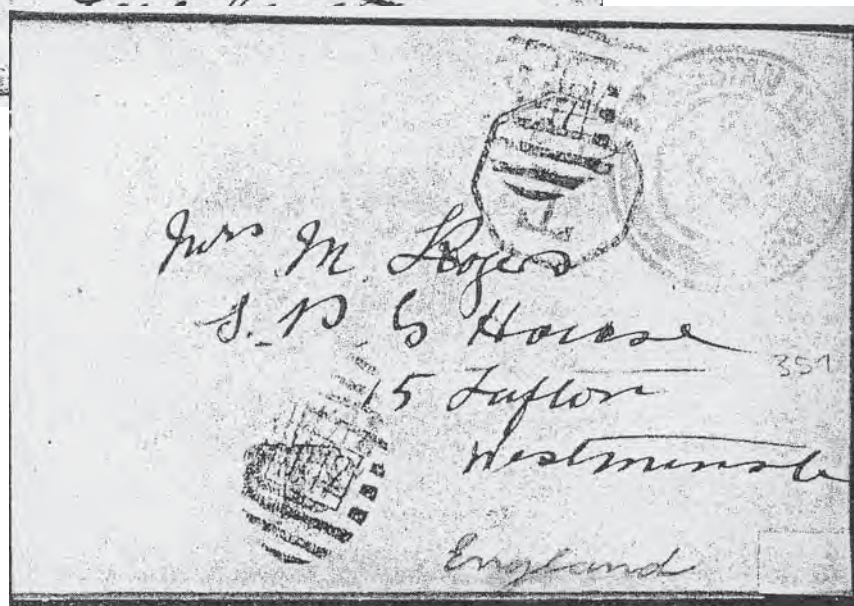 Mrs M Rogers
S. P. G House
351
15 Tufton
Westminste
England